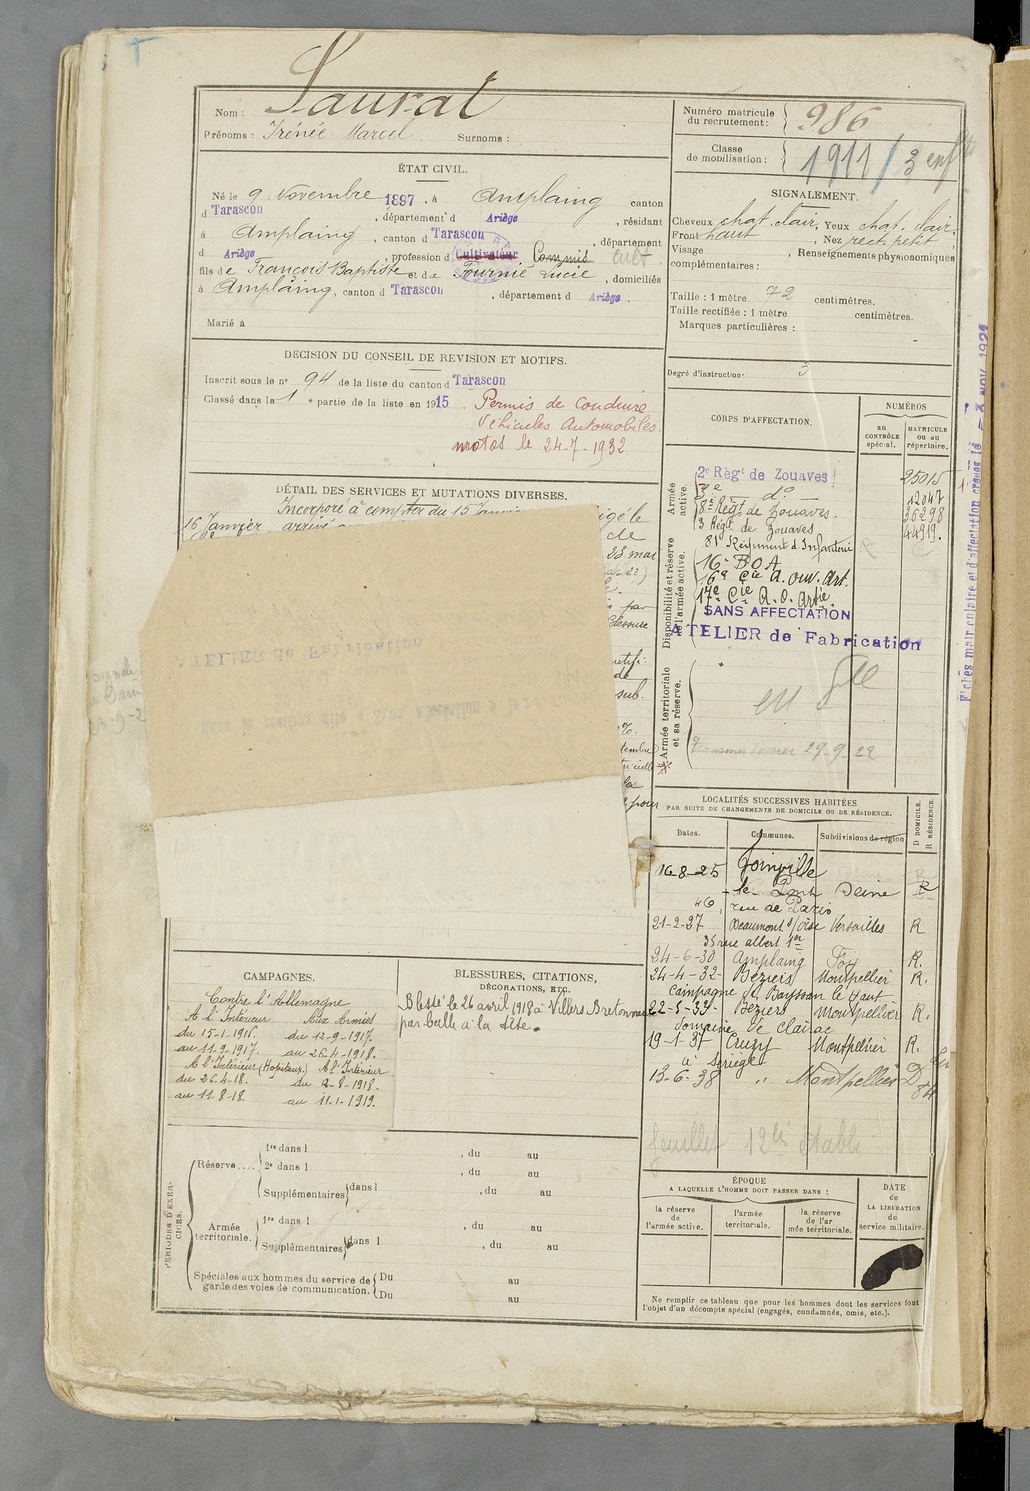 Nom : Saurat
Prénoms : Irénée Marcel Surnoms :
Numéro matricule du recrutement : 986
Classe de mobilisation : 1911 / 3 enfts
ÉTAT CIVIL.
Né le 9 Novembre 1897, à Amplaing canton
d Tarascon, département d Ariège, résidant
à Amplaing, canton d Tarascon, département
d Ariège, profession d Cultivateur Commis cult
fils de François Baptiste et de Fournié Lucie, domiciliés
à Amplaing, canton d Tarascon, département d Ariège.
Marié à
SIGNALEMENT.
Cheveux chat. clair, Yeux chat. clair,
Front haut, Nez rect. petit,
Visage , Renseignements physionomiques
complémentaires :
Taille : 1 mètre 72 centimètres.
Taille rectifiée : 1 mètre centimètres.
Marques particulières :
Degré d'instruction. 3
DECISION DU CONSEIL DE REVISION ET MOTIFS.
Inscrit sous le n° 94 de la liste du canton d Tarascon
Classé dans la 1 e partie de la liste en 1915.
Permis de Conduire
Véhicules Automobiles.
motos le 24-7-1932
DÉTAIL DES SERVICES ET MUTATIONS DIVERSES.
Incorporé à compter du 15 Janvier
16 Janvier arrivé
de
23 mai
par
blessure
de
sub.
pour
ATELIER de Fabrication
CORPS D'AFFECTATION.
NUMÉROS
AU CONTRÔLE spécial.
MATRICULE ou au répertoire.
Armée active.
2e Régt de Zouaves 25015
3e do 12047
8e Régt de Zouaves. 36298
3 Régt de Zouaves 44919.
Disponibilité et réserve de l'armée active.
81e Régiment d'Infanterie
16e BOA
16e Cie A. ouv. Art.
17e Cie A. O. Artie.
SANS AFFECTATION
ATELIER de Fabrication
Armée territoriale et sa réserve.
Transmis dossier 29-9-22
Fiches matriculaire et d'affectation créées le
LOCALITÉS SUCCESSIVES HABITÉES
PAR SUITE DE CHANGEMENTS DE DOMICILE OU DE RÉSIDENCE.
D DOMICILE.
R RÉSIDENCE.
Dates. Communes. Subdivisions de région
16-8-25 Joinville
le Pont Seine R
46, rue de Paris
21-2-27 Beaumont s/Oise Versailles R
35 rue albert 1er
24-6-30 Amplaing Foix R.
24-4-32 Béziers Montpellier R.
Campagne de Bayssan le Haut
22-5-33 Béziers Montpellier R.
Domaine de Clairac
19-1-37 Cruzy Montpellier R.
à Sériège
13-6-38 " Montpellier D
feuillet 12 bis établi
CAMPAGNES.
Contre l'Allemagne
A l'Intérieur Aux Armées
du 15-1-1916. du 12-9-1917.
au 11-9-1917. au 26-4-1918.
A l'Intérieur (Hôpitaux) A l'Intérieur
du 26-4-18. du 12-8-1918.
au 11-8-18. au 11-1-1919.
BLESSURES, CITATIONS,
DÉCORATIONS, ETC.
Blessé le 26 avril 1918 à Villers Bretonneux
par balle à la tête.
PÉRIODES D'EXERCICES.
Réserve....
1re dans l , du au
2e dans l , du au
Supplémentaires dans l , du au
Armée territoriale.
1re dans l , du au
Supplémentaires dans l , du au
Spéciales aux hommes du service de garde des voies de communication.
Du au
Du au
ÉPOQUE
A LAQUELLE L'HOMME DOIT PASSER DANS :
la réserve de l'armée active.
l'armée territoriale.
la réserve de l'armée territoriale.
DATE
de
LA LIBÉRATION
du
service militaire.
Ne remplir ce tableau que pour les hommes dont les services font
l'objet d'un décompte spécial (engagés, condamnés, omis, etc.).